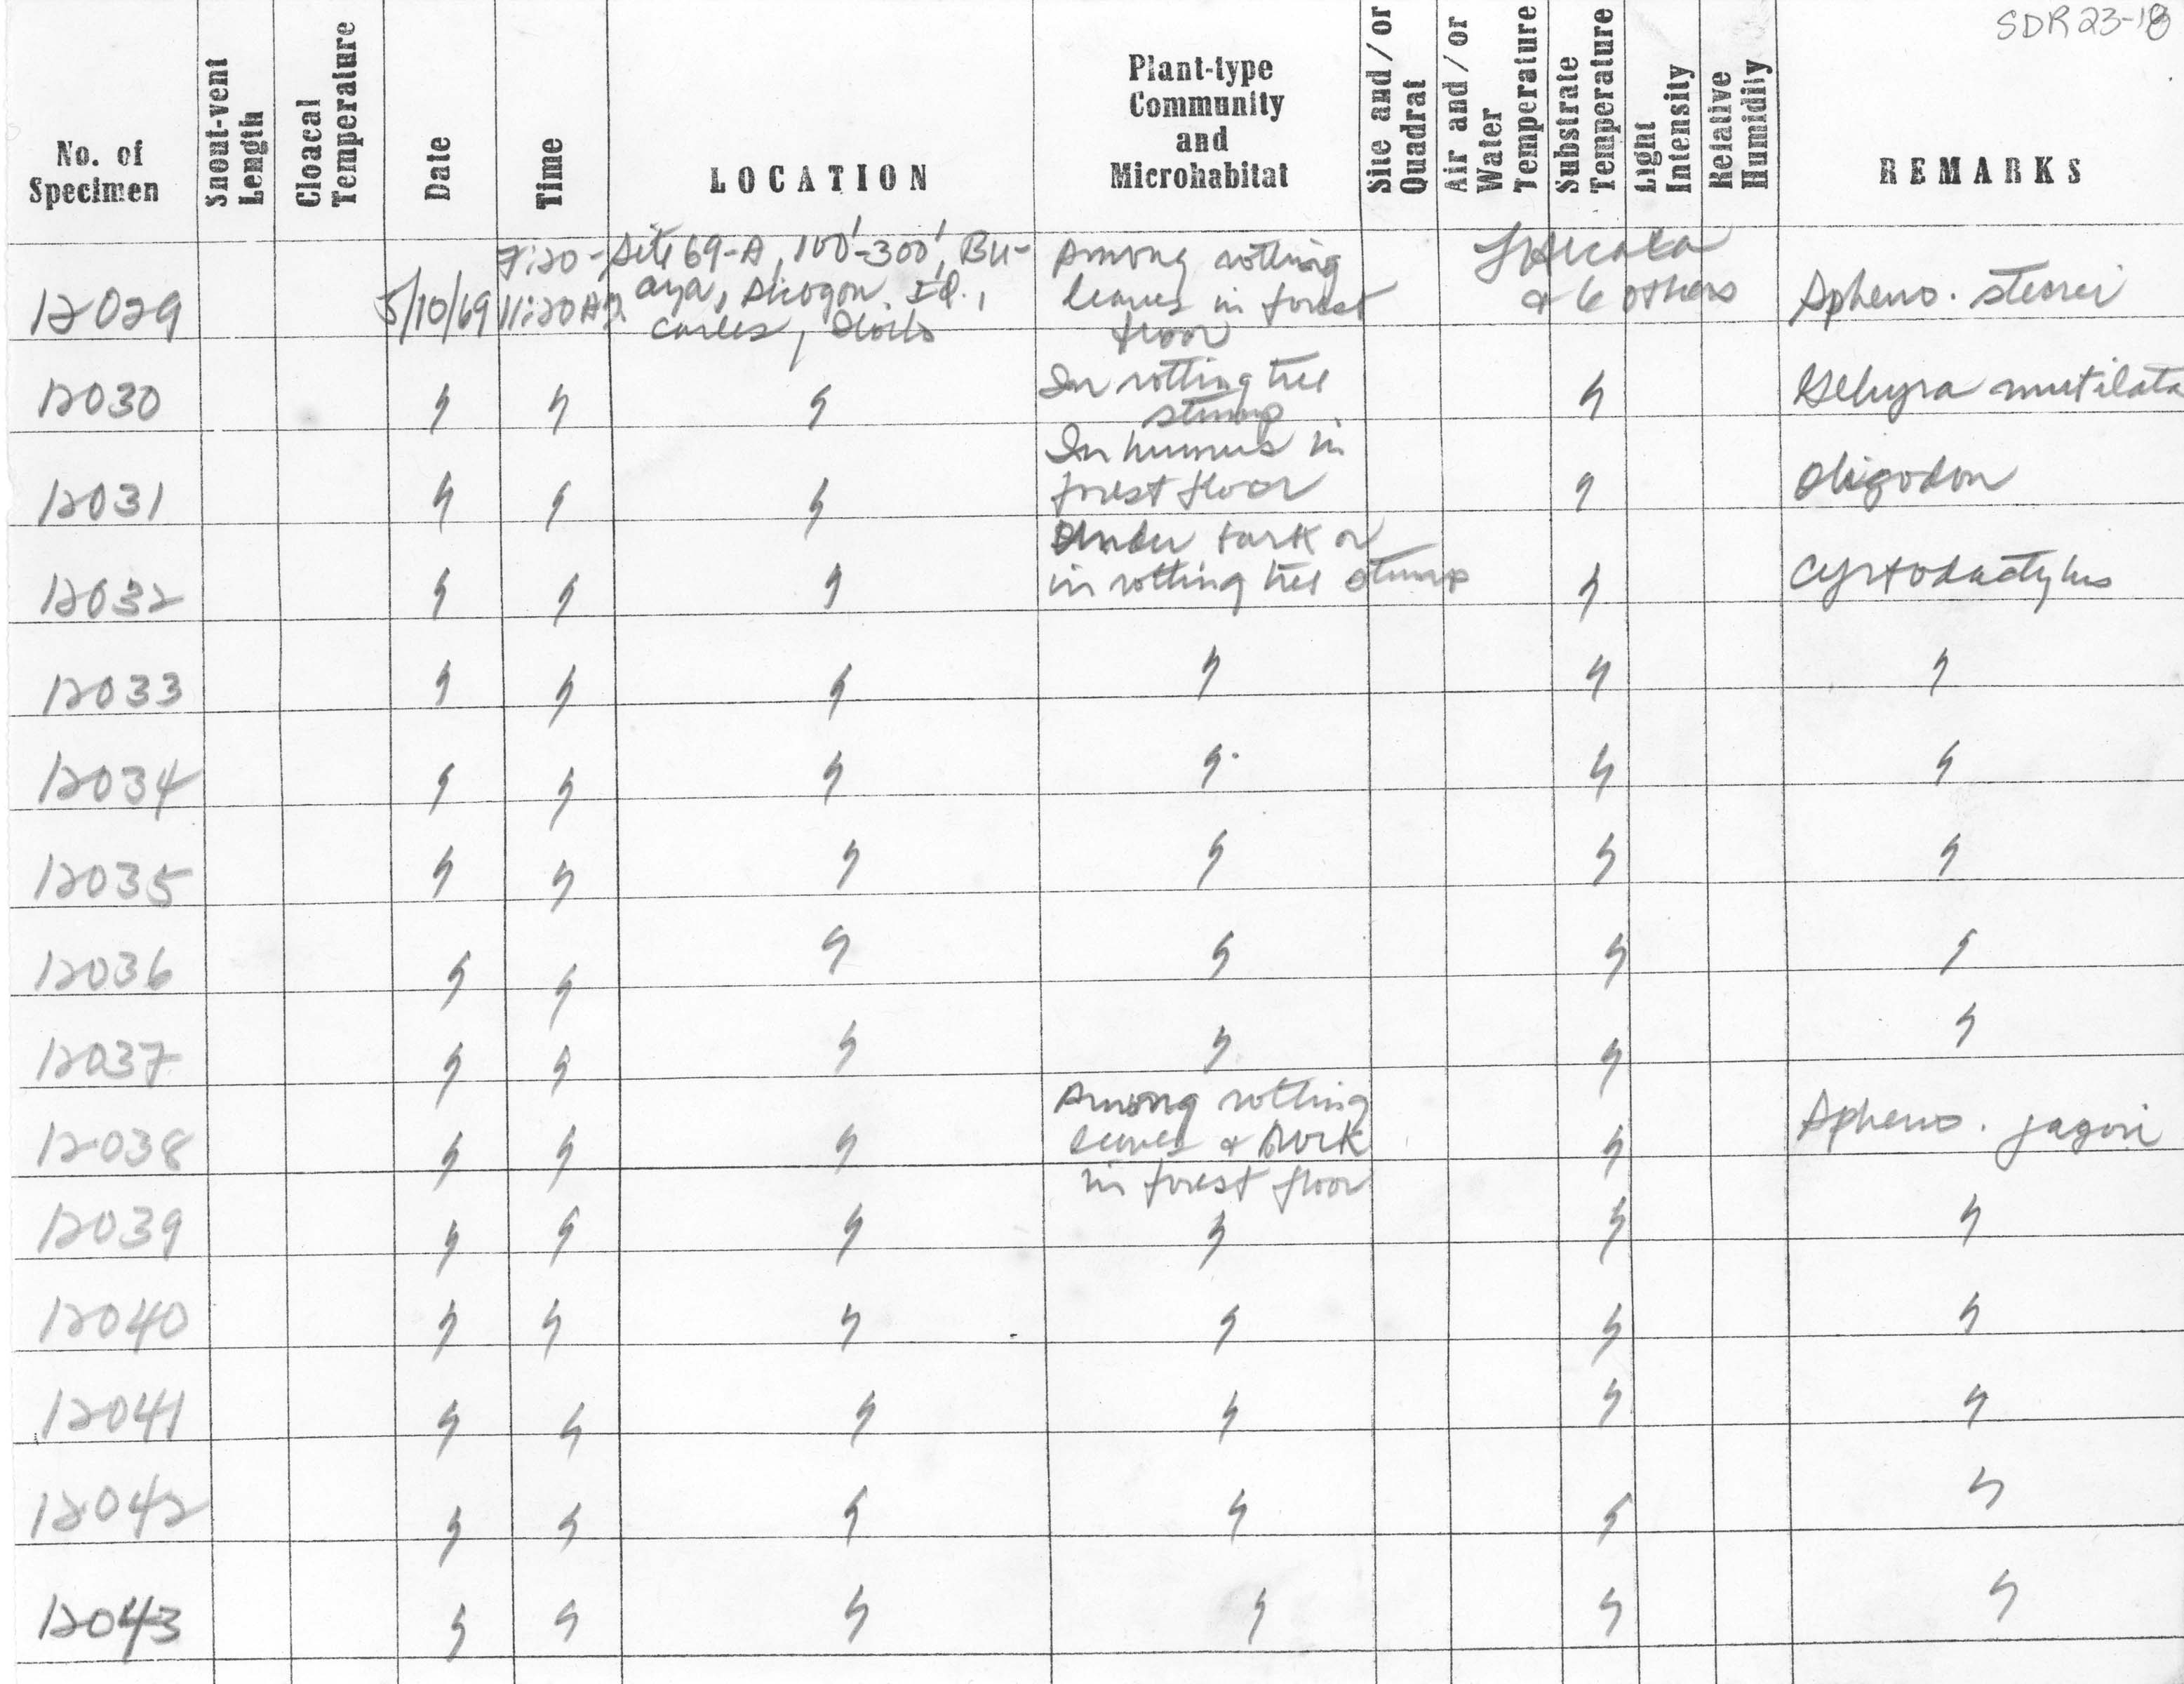 SDR 23-18
No. of Specimen | Snout-vent Length | Cloacal Temperature | Date | Time | LOCATION | Plant-type Community and Microhabitat | Site and/or Quadrat | Air and/or Water Temperature | Substrate Temperature | Light Intensity | Relative Humidity | REMARKS
12029 | 5/10/69 | 7:20-11:20 AM | Site 69-A, 100'-300', Bu-aya, Sicogon Id., Carles, Iloilo | Among rotting leaves in forest floor | & 6 others | Spheno. steerei
12030 | " | " | " | In rotting tree stump | " | Gehyra mutilata
12031 | " | " | " | In humus in forest floor | " | Oligodon
12032 | " | " | " | Under bark or in rotting tree stump | " | Cyrtodactylus
12033 | " | " | " | " | " | "
12034 | " | " | " | " | " | "
12035 | " | " | " | " | " | "
12036 | " | " | " | " | " | "
12037 | " | " | " | " | " | "
12038 | " | " | " | Among rotting leaves & bark in forest floor | " | Spheno. jagori
12039 | " | " | " | " | " | "
12040 | " | " | " | " | " | "
12041 | " | " | " | " | " | "
12042 | " | " | " | " | " | "
12043 | " | " | " | " | " | "